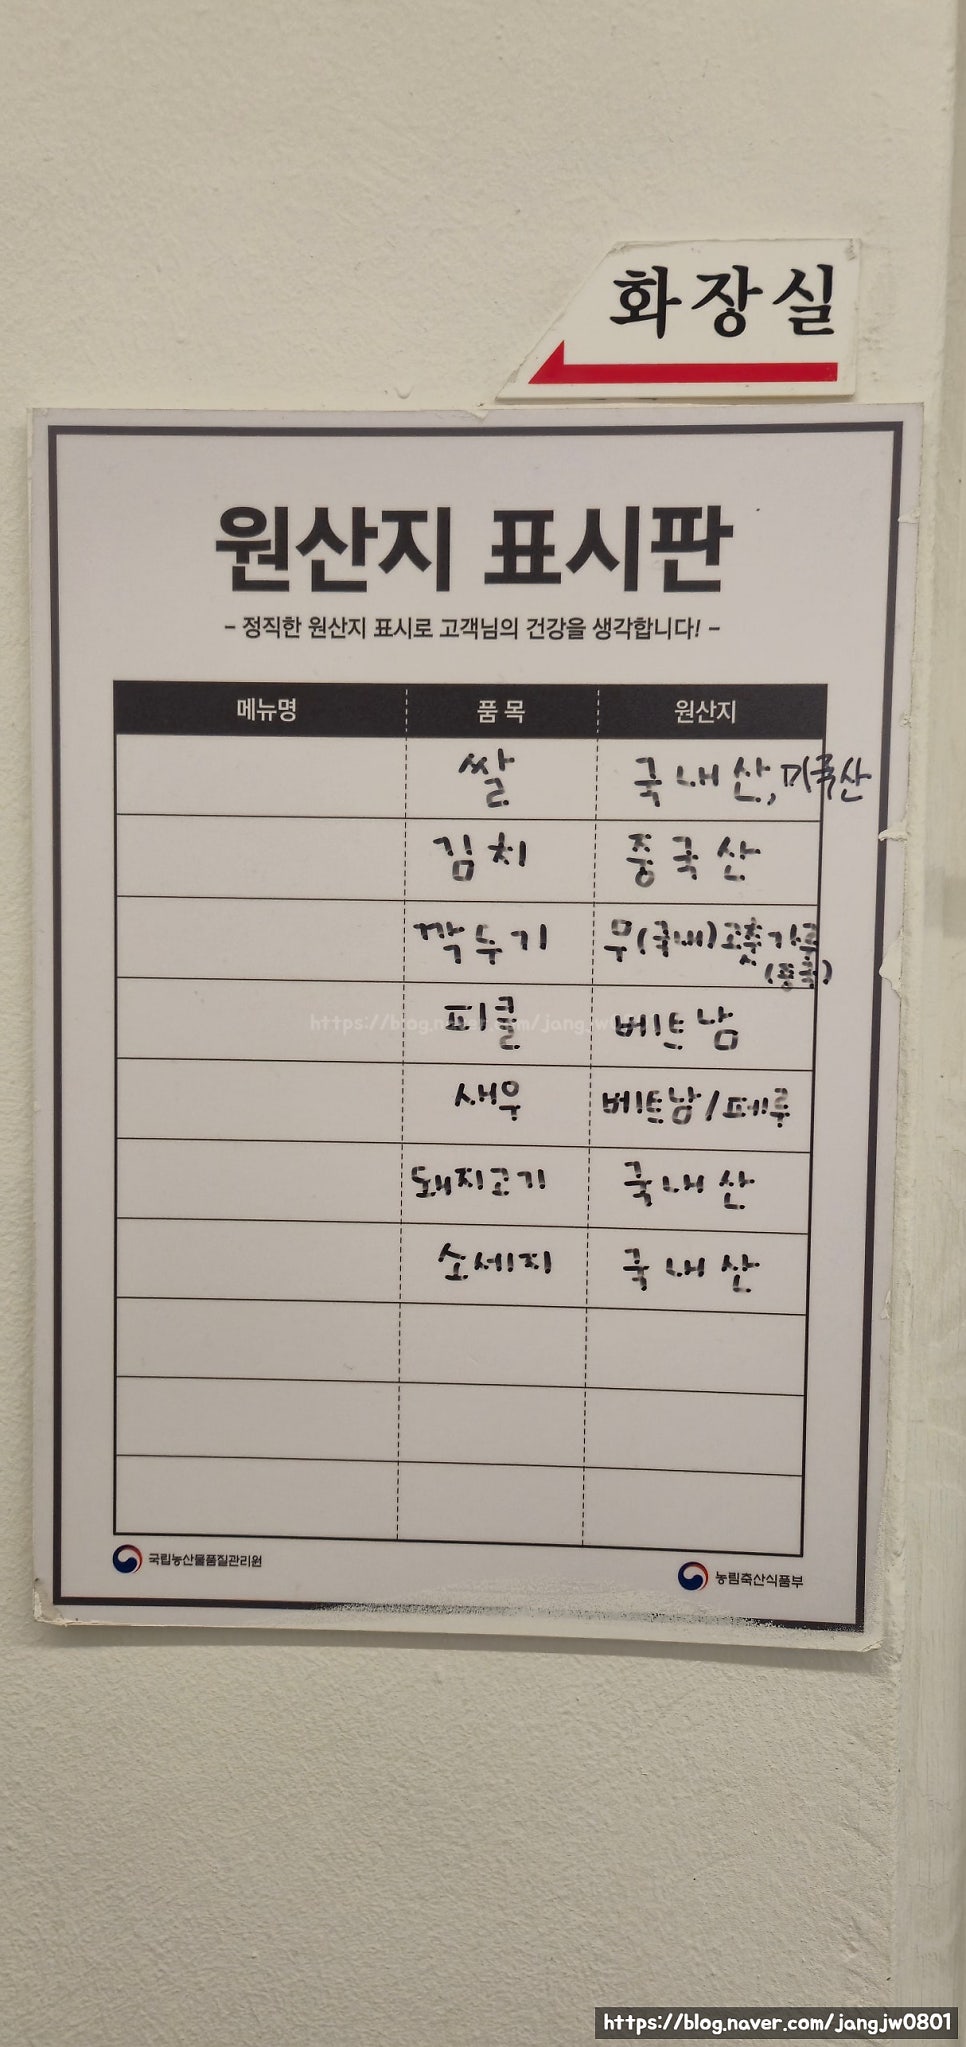 화장실
원산지 표시판
- 정직한 원산지 표시로 고객님의 건강을 생각합니다! -
메뉴명 품목 원산지
쌀 국내산, 미국산
김치 중국산
깍두기 무(국내)고춧가루
(중국)
피클 베트남
새우 베트남/페루
돼지고기 국내산
소세지 국내산
국립농산물품질관리원
농림축산식품부
https://blog.naver.com/jangjw0801
https://blog.naver.com/jangjw0801